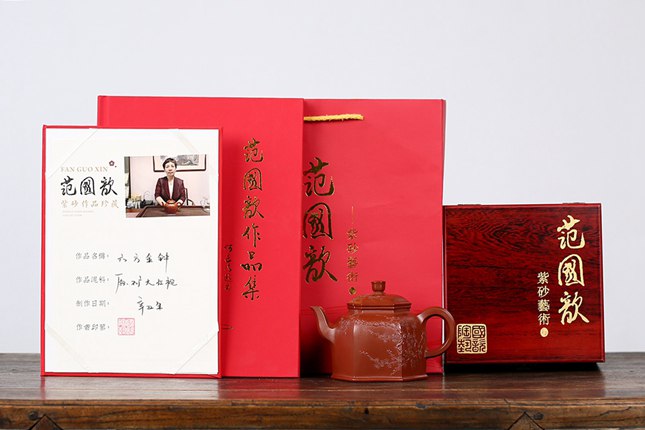 FAN GUO XIN
范國歆
紫砂作品珍藏
作品名稱：六方金鐘
作品泥料：
製作日期：辛丑年
作者印鑒：
范國歆作品集
范國歆
紫砂藝術
范國歆
紫砂藝術